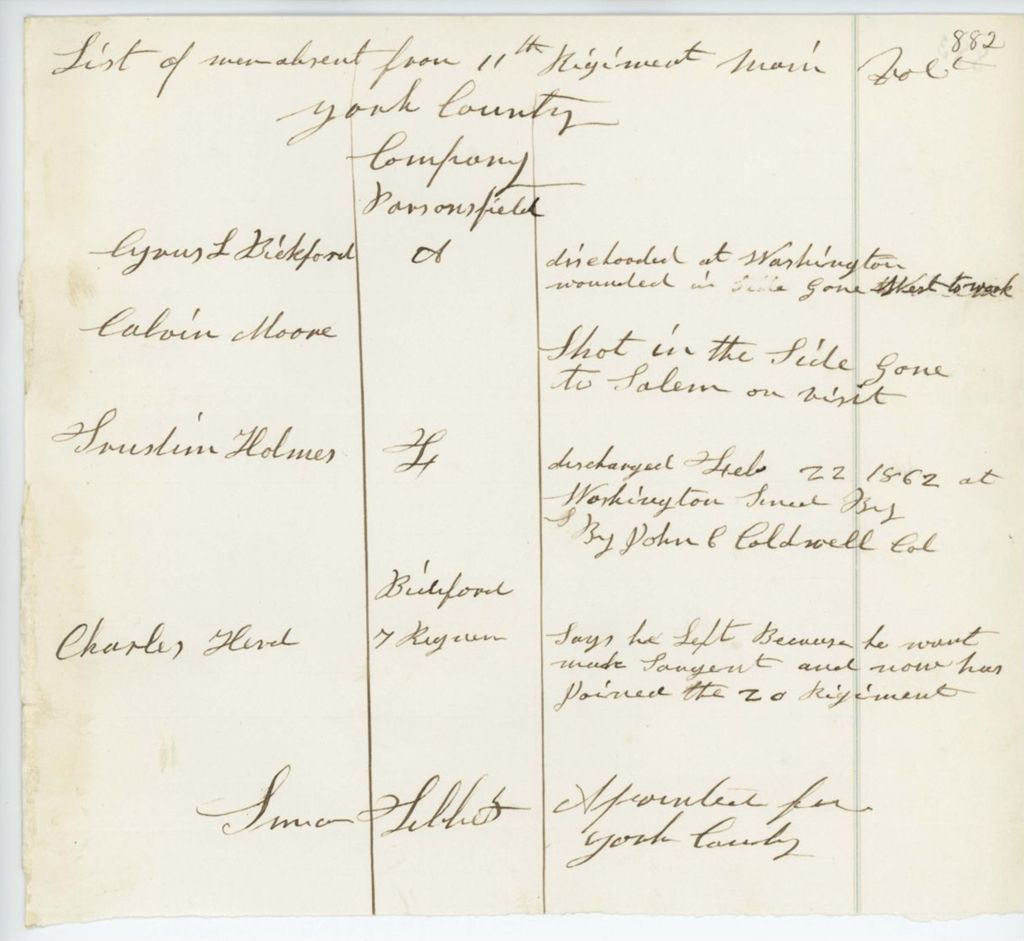 882
List of men absent from 11th Rigiment Main Vol
York County
Company
Parsonsfield
Cyrus L Bickford A discloaded at Washington
wounded in Side gone West to work
Calvin Moore Shot in the Side gone
to Salem on visit
Holmes F discharged Feb 22 1862 at
Washington By
By John C Coldwell Col
Bickford
Charles Herd 7 Says he Left Because he want
made Sargent and now has
Joined the 20 Rigiment
Apointed for
York County